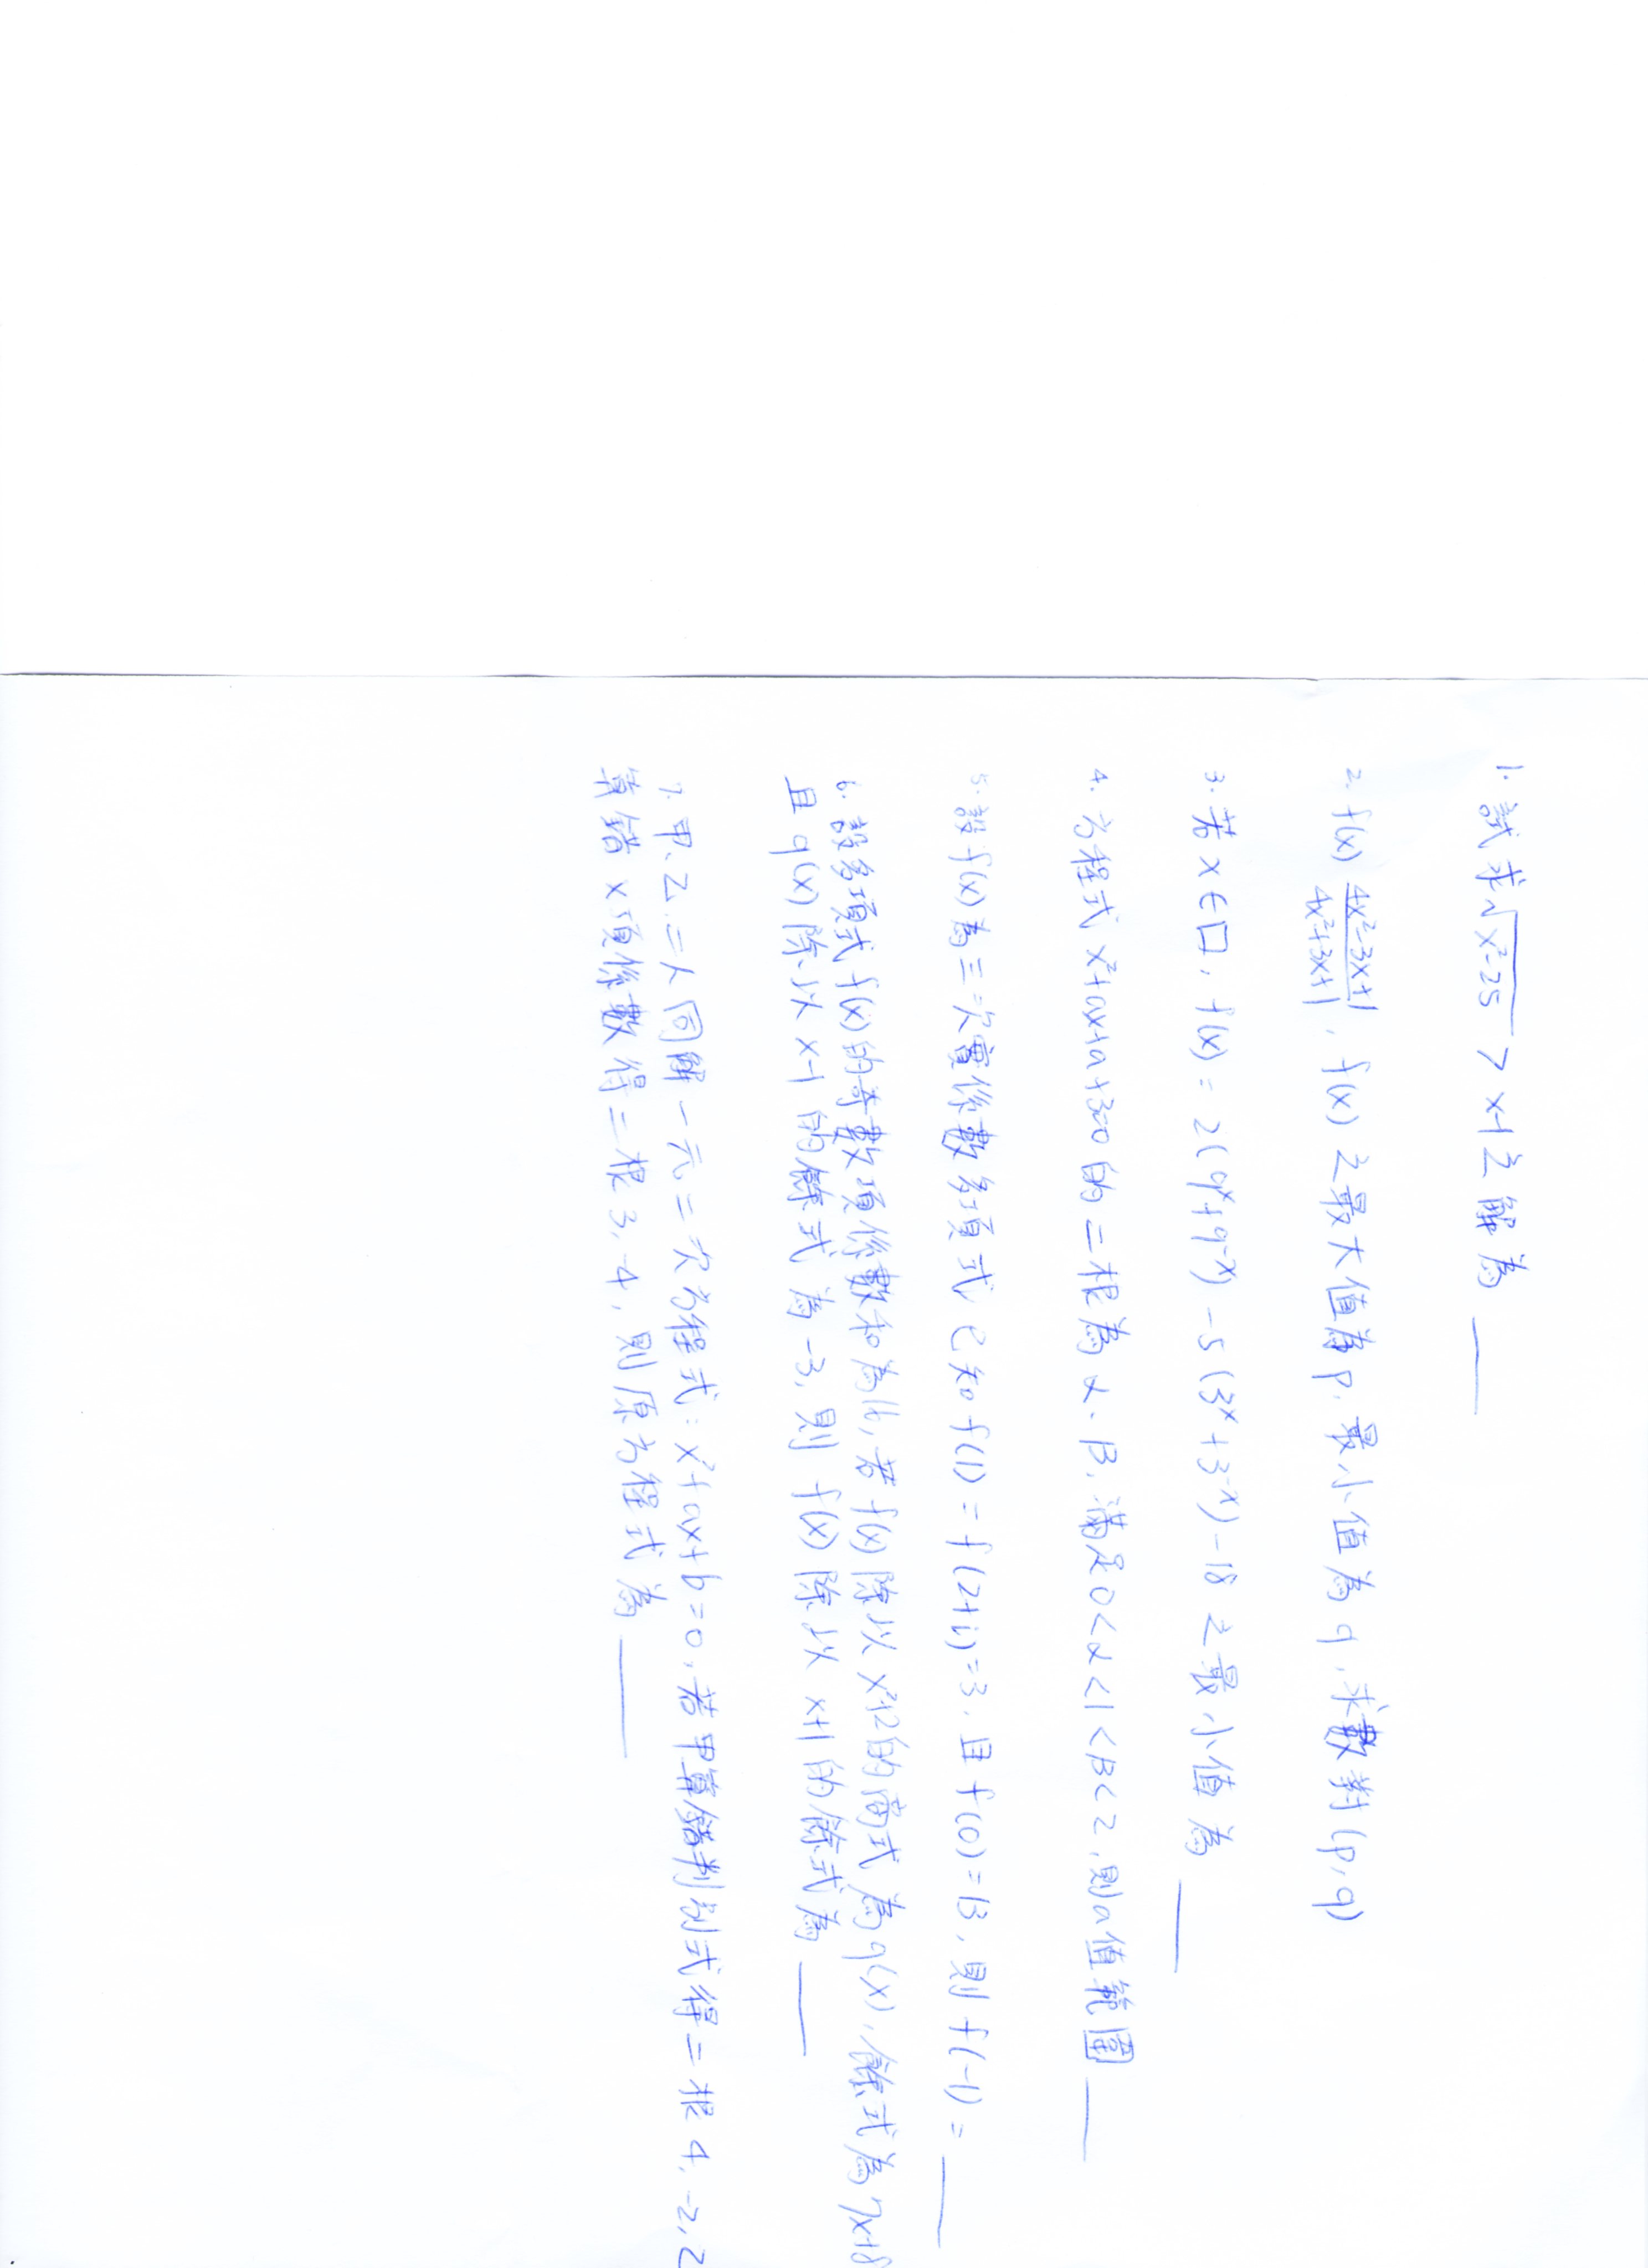 1. 試求√x²-25 > x-1之解為 ___
2. f(x) 4x²-3x+1/4x²+3x+1, f(x) 之最大值為p, 最小值為q, 求數對(p,q)
3. 若x∈口, f(x) = 2(9ˣ+9⁻ˣ) -5(3ˣ+3⁻ˣ) -18 之最小值為 ___
4. 方程式 x²+ax+a+3=0 的二根為α、β, 滿足0<α<1<β<2, 則a值範圍 ___
5. 設f(x)為三次實係數多項式 已知f(1) = f(2+i)=3, 且f(0)=13, 則f(-1) = ___
6. 設多項式f(x)的奇數項係數和為16, 若f(x)除以x²+2的商式為q(x), 餘式為7x+8
且q(x)除以x-1的餘式為-3, 則f(x)除以x+1的餘式為 ___
7. 甲、乙二人同解一元二次方程式: x²+ax+b=0, 若甲算錯判別式得二根4,-2,乙
算錯x項係數得二根3,-4, 則原方程式為 ___